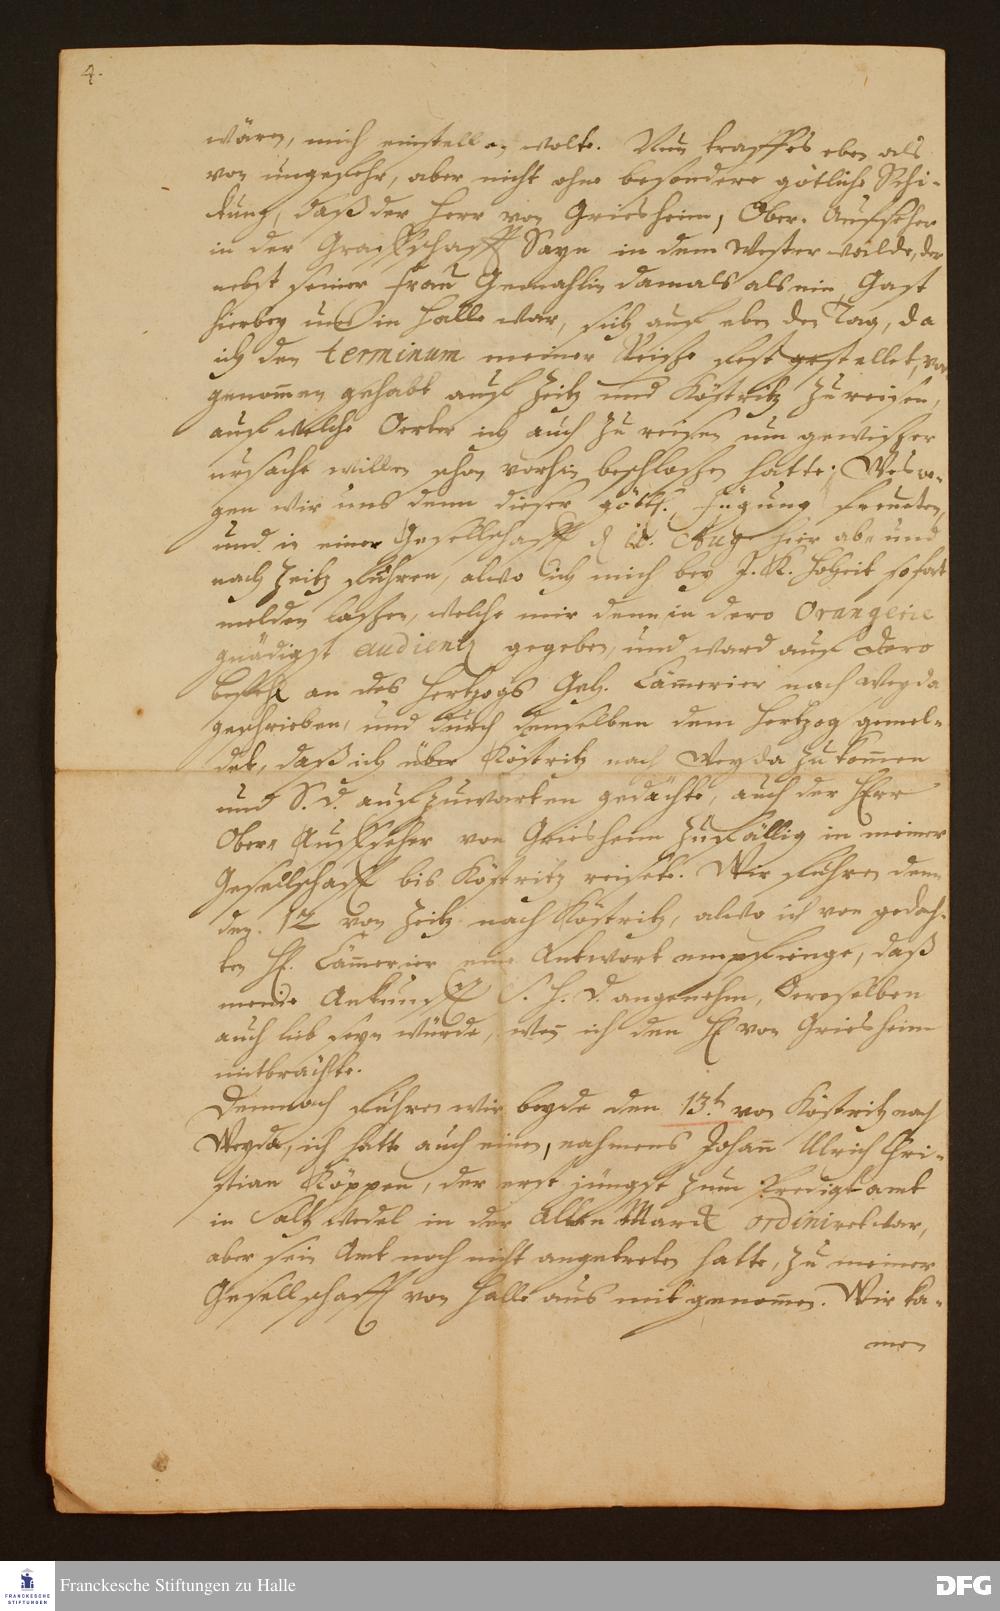 4.
wären, mich einstellen wolte. Nun traff es eben als
von ungefehr, aber nicht ohne besondere götliche Schi-
ckung, daß der Herr von Griesheim, Ober-Auffseher
in der Graffschafft Sayn in dem Westerwalde, der
nebst seiner Frau Gemahlin damals als ein Gast
hierbey uns in Halle war, sich auf eben den Tag, da
ich den terminum meiner Reise fest gestellet, vor
genom̄en gehabt auf Zeitz und Köstritz zu reisen,
auf welche Oerter ich auch zu reisen um gewisser
ursache willen schon vorhin beschlossen hatte; Wesw-
gen wir uns denn dieser göttl. Fügung freueten,
und in einer Gesellschafft d. Aug. hier ab- und
nach Zeitz fuhren, alwo ich mich bey J. K. Hoheit sofort
melden lassen, welche mir denn in dero Orangerie
gnädigst audientz gegeben, und ward auf Dero
befehl an des Hertzogs Geh. Cäm̄erier nach Weyda
geschrieben, und durch denselben dem Hertzog gemel-
det, daß ich über Köstritz nach Weyda zu kom̄en
und S. D. aufzuwarten gedächte, auch der Herr
Ober-Auffseher von Griesheim zufällig in meiner
Gesellschafft bis Köstritz reisete. Wir fuhren denn
den 12 von Zeitz nach Köstritz, alwo ich von gedach-
ten H. Cäm̄erier eine Antwort empfienge, daß
meine Ankunfft S. H. D. angenehm, Deroselben
auch lieb seyn würde, wen̄ ich den H. von Griesheim
mitbrächte.
Demnach fuhren wir beyde den 13.t von Köstritz nach
Weyda, ich hatte auch einen, nahmens Johan̄ Ulrich Chri-
stian Köppen, der erst jüngst zum Predigtamt
in Saltzwedel in der Alten Marck ordiniret war,
aber sein Amt noch nicht angetreten hatte, zu meiner
Gesellschafft von Halle aus mit genom̄en. Wir ka-
men
FRANCKESCHE STIFTUNGEN
Franckesche Stiftungen zu Halle
DFG